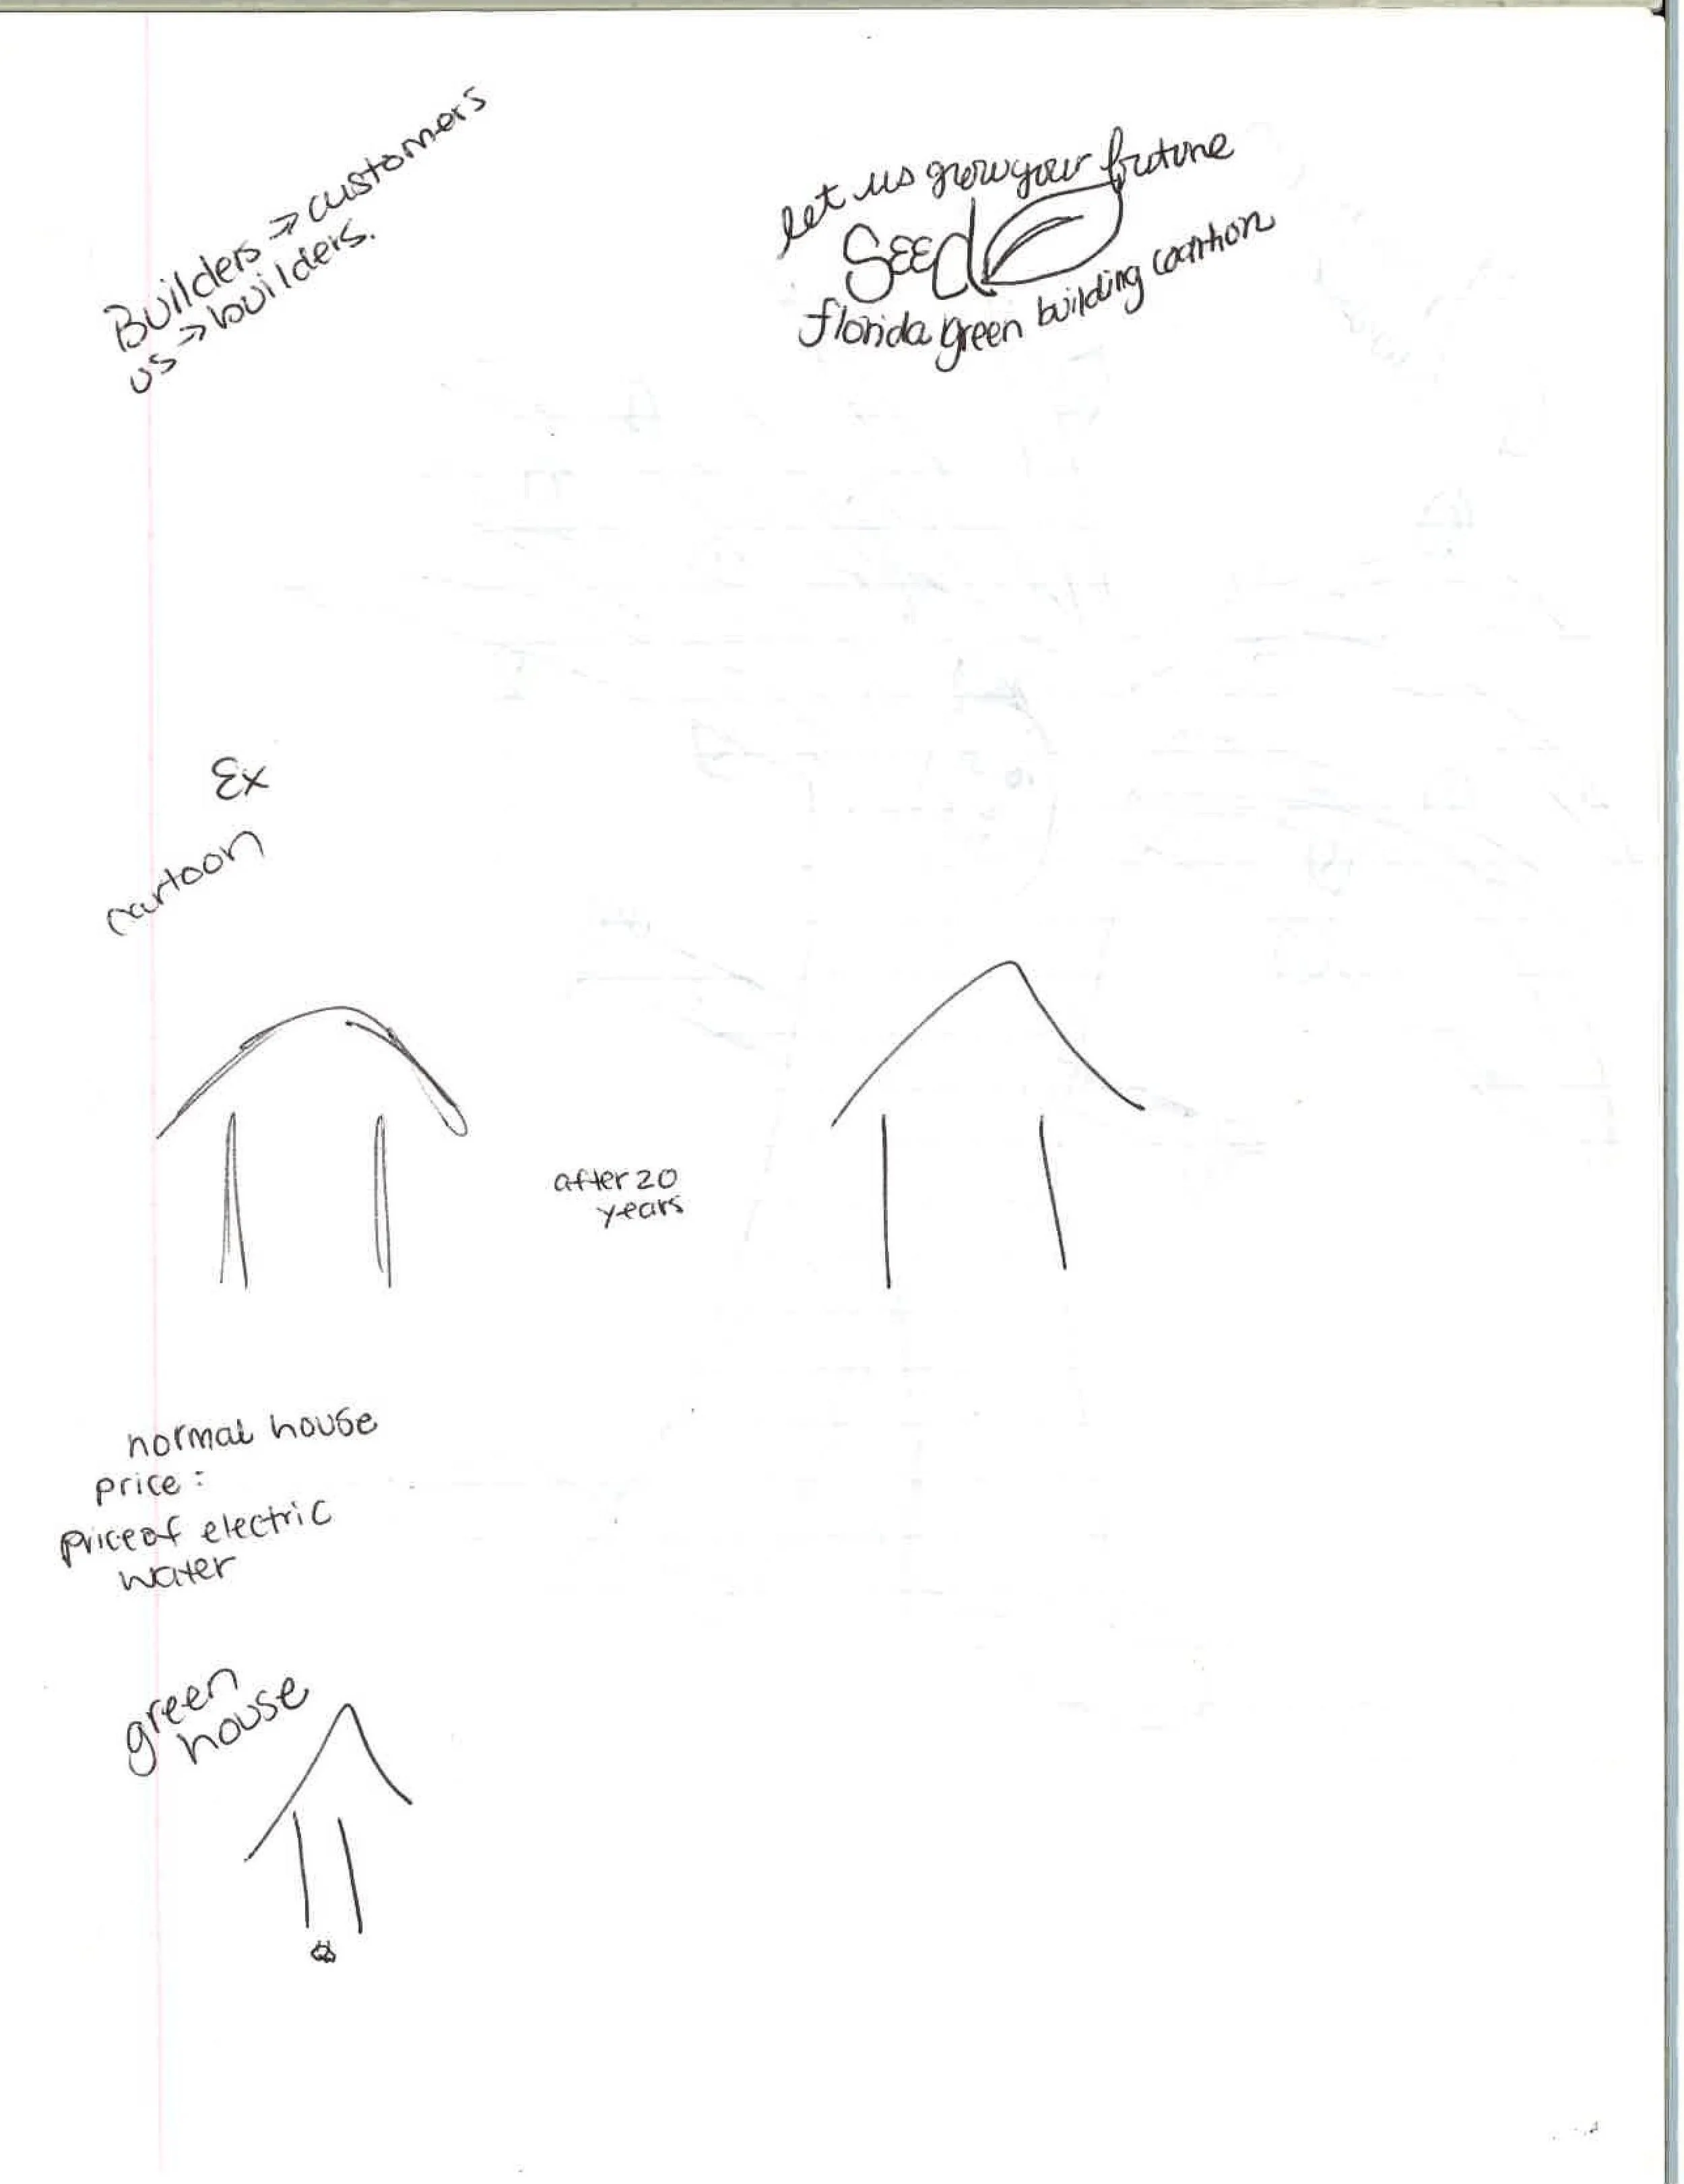 Builders => customers
us => builders.
let us grow your future
SEEd
florida green building coartion
Ex
cartoon
after 20
years
normal house
price :
price of electric
water
green
house